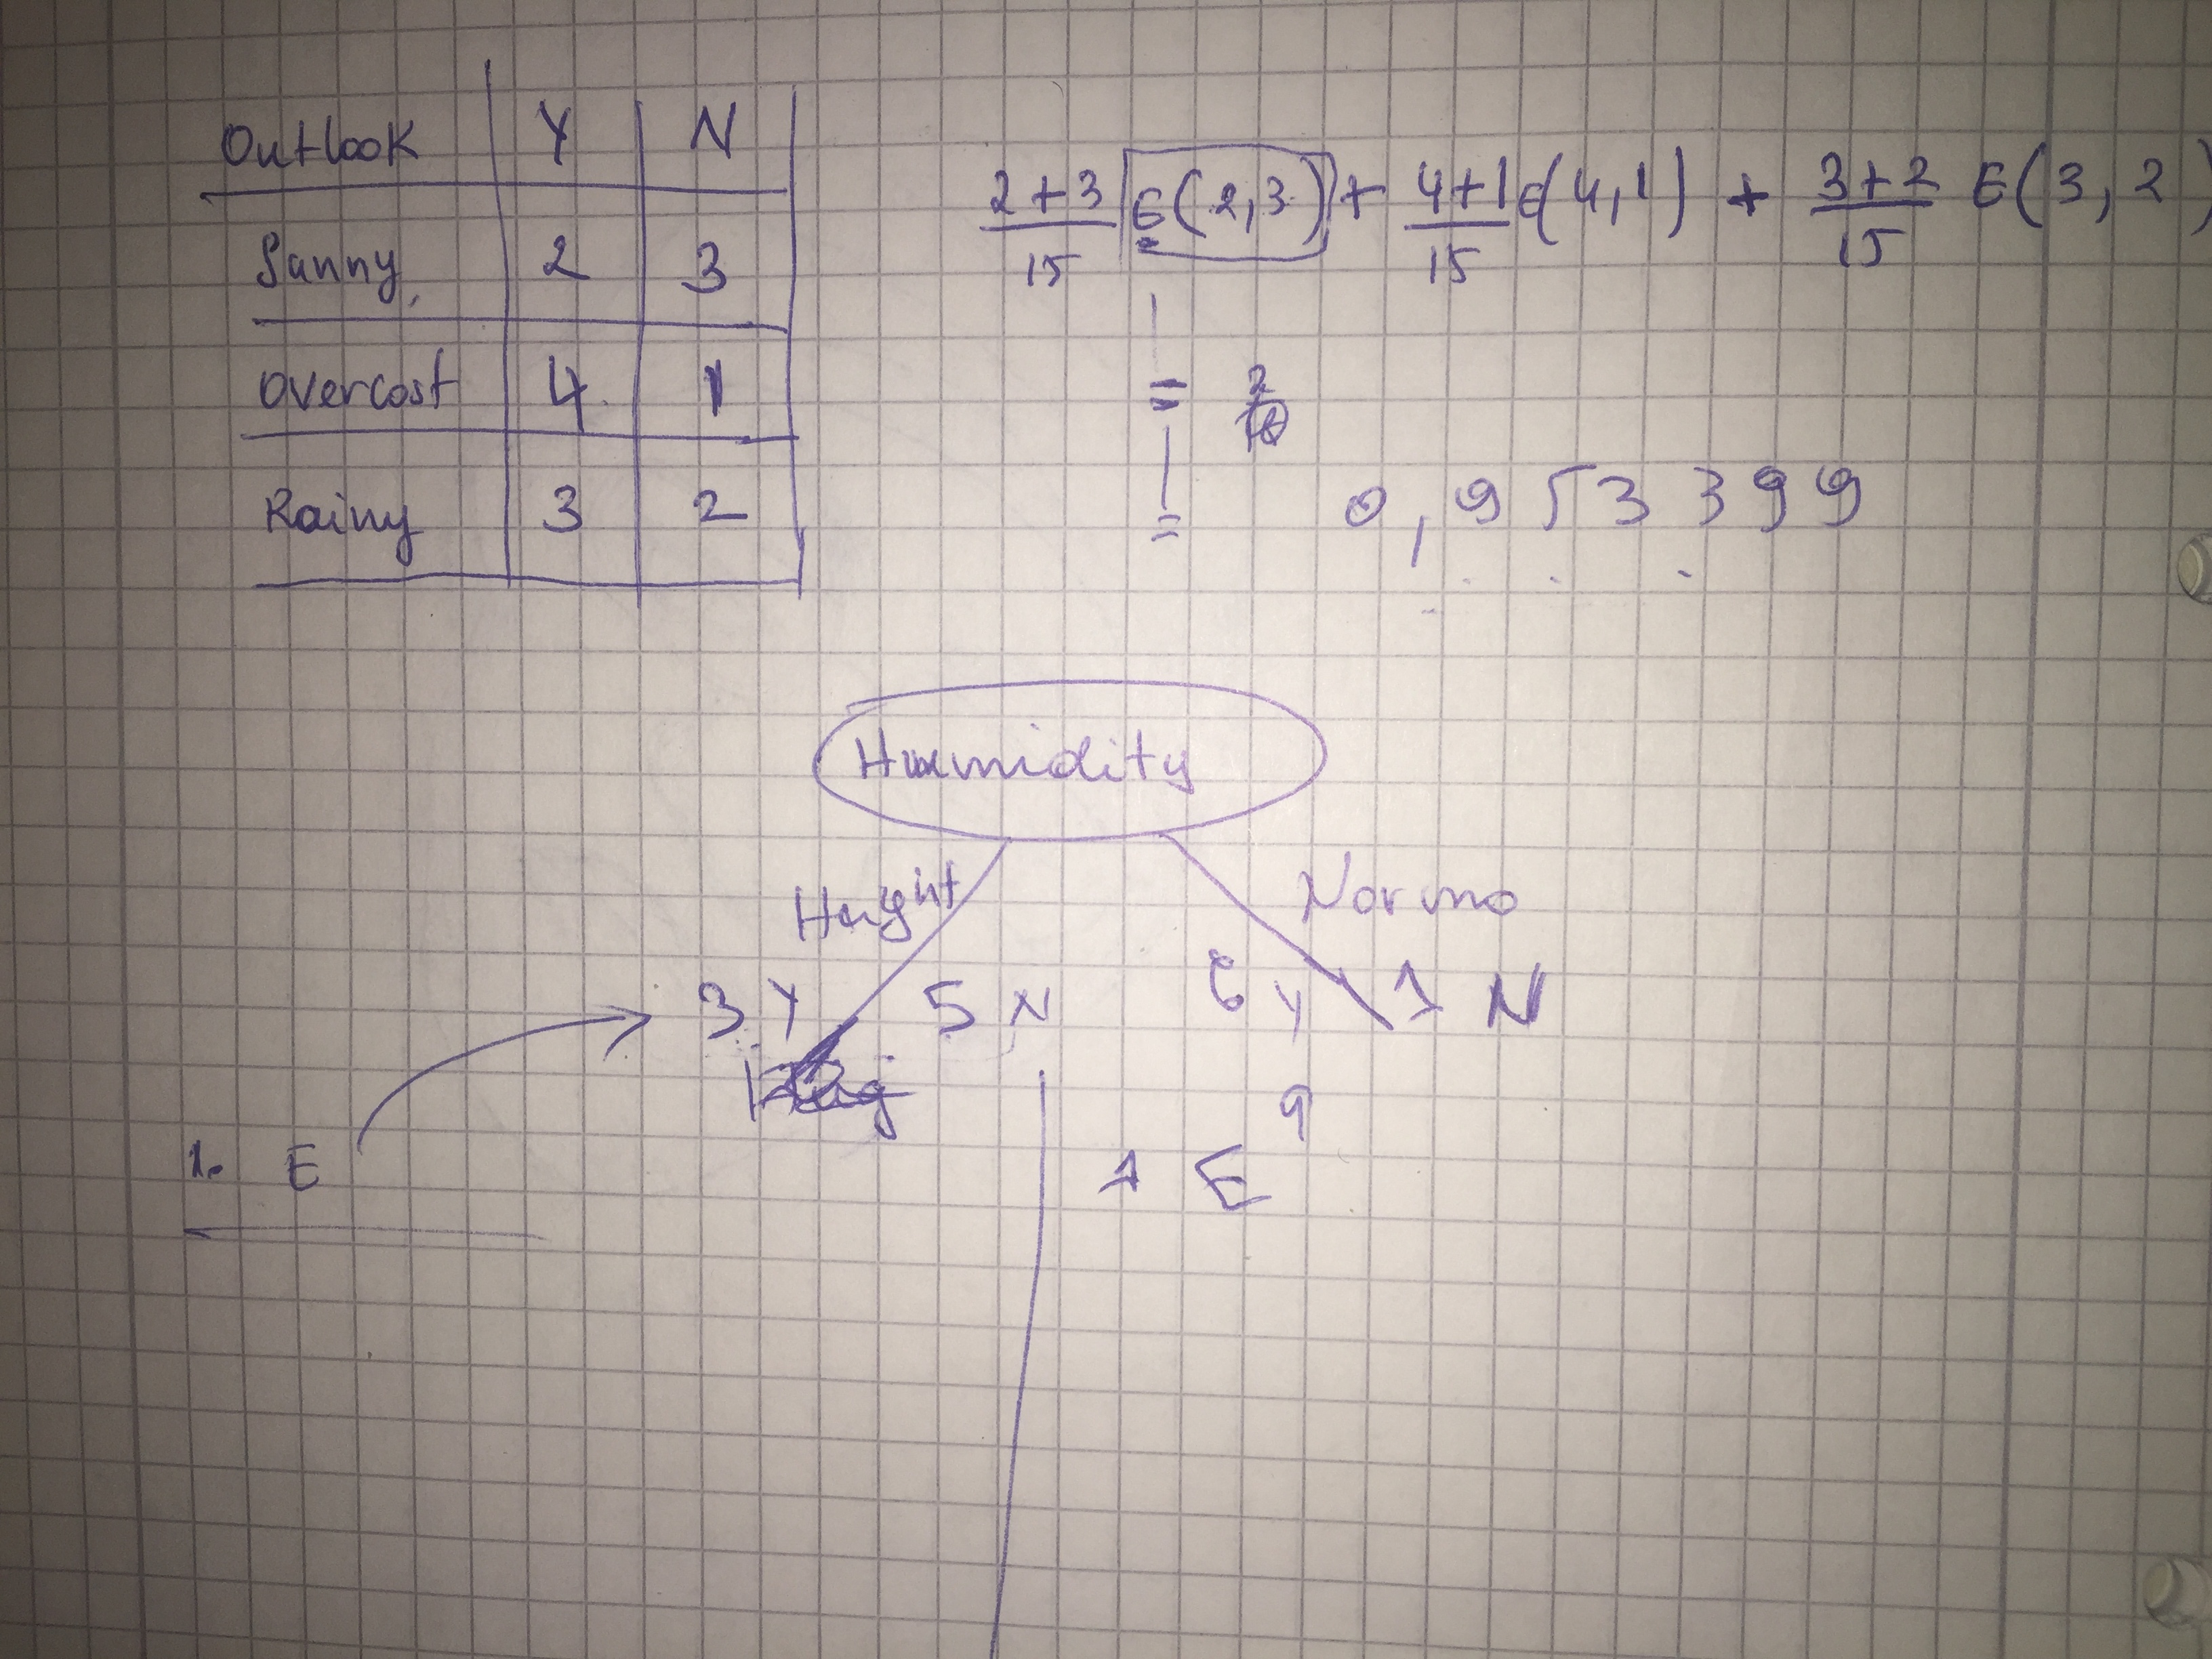 Outlook Y N
Sunny, 2 3
Overcost 4 1
Rainy 3 2
2+3/15 E(2,3) + 4+1/15 E(4,1) + 3+2/15 E(3,2)
=
= 0,953399
Humidity
Heyht Normo
3 Y 5 N 6 Y 1 N
9
1. E 1 E